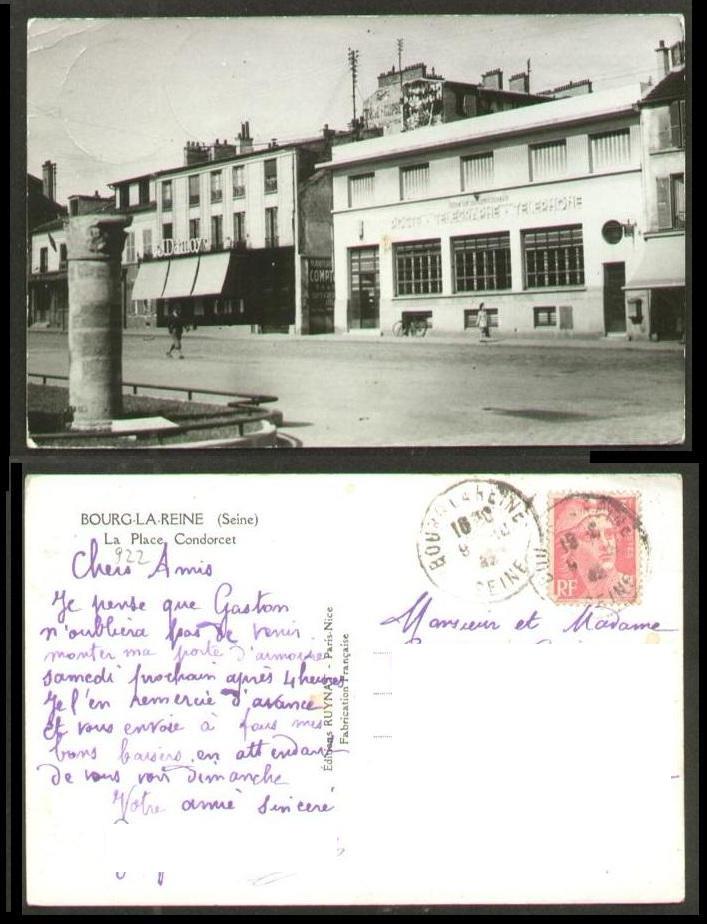 POSTE - TELEGRAPHE - TELEPHONE
COMPT
BOURG-LA-REINE (Seine)
La Place Condorcet
922
Chers Amis
Je pense que Gaston
n'oubliera pas de venir
monter ma porte d'armoire
samedi prochain après 4 heures
Je l'en remercie d'avance
et vous envoie à tous mes
bons baisers en attendant
de vous voir dimanche
Votre amie sincère
Éditions RUYNAT - Paris-Nice
Fabrication Française
BOURG LA REINE
SEINE
RF
Monsieur et Madame